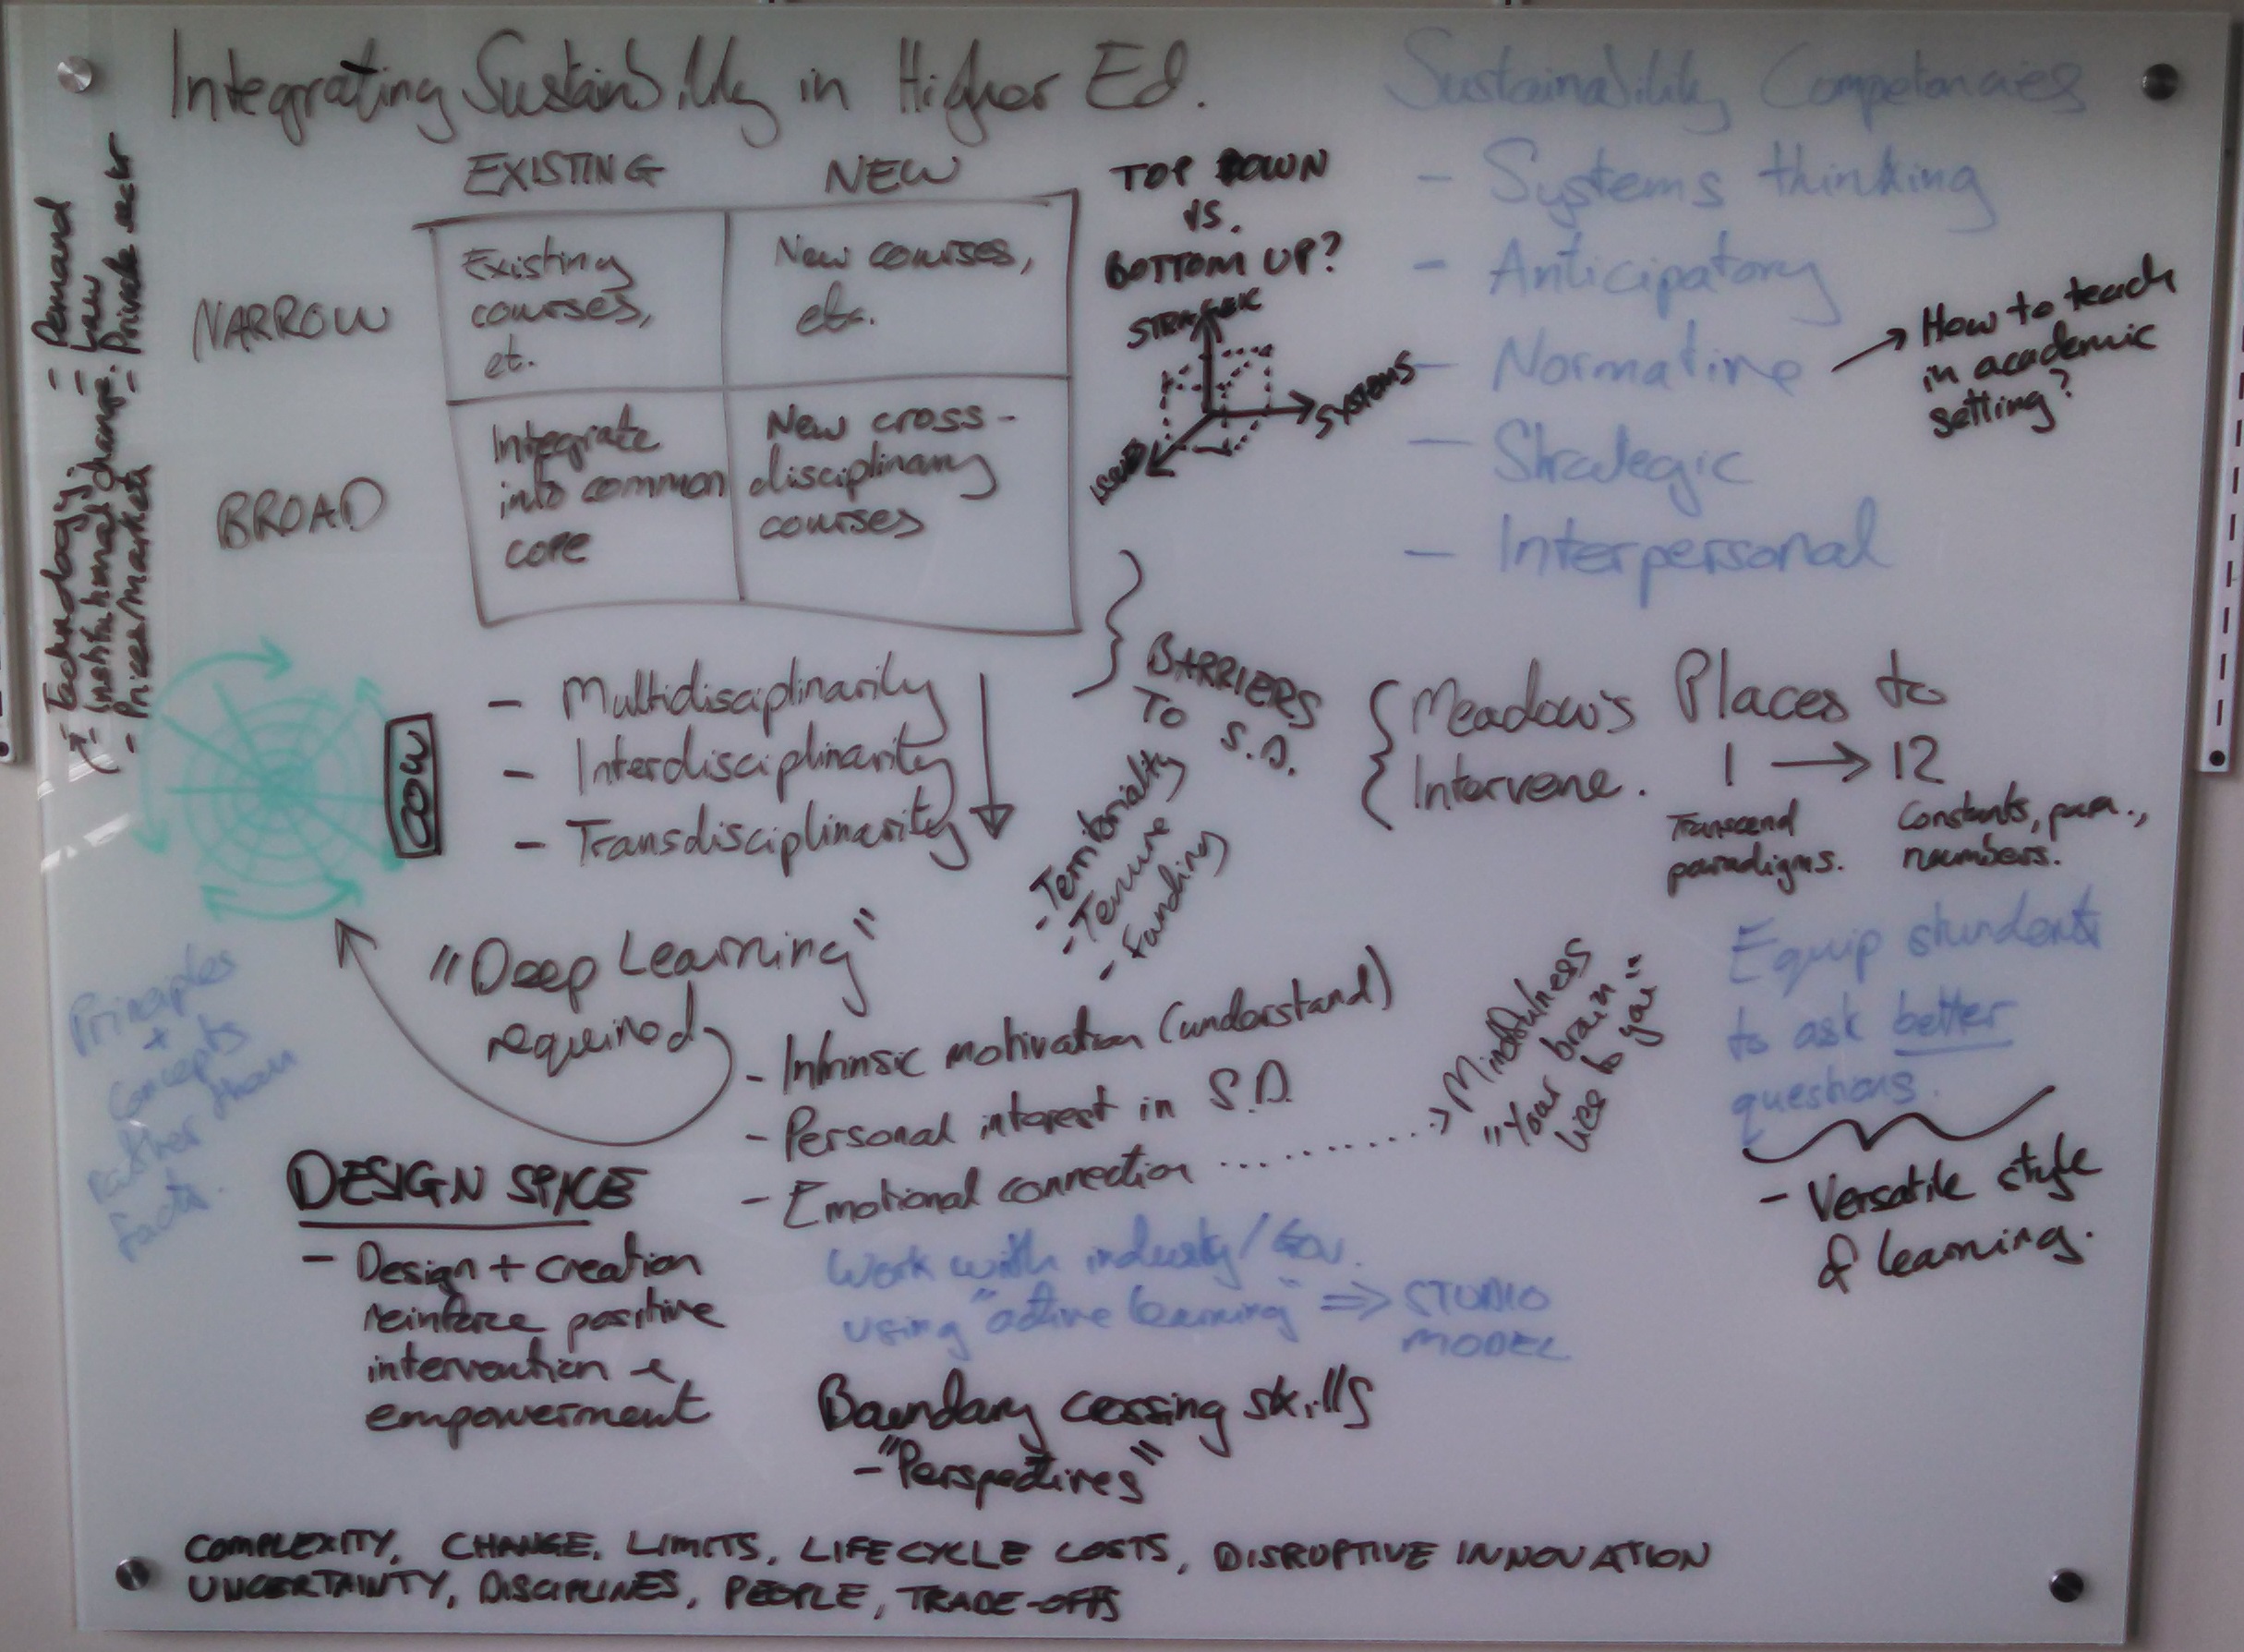 Integrating Sustainability in Higher Ed.
EXISTING NEW
NARROW
BROAD
Existing
courses,
et.
New courses,
etc.
Integrate
into common
core
New cross-
disciplinary
courses
TOP DOWN
vs.
BOTTOM UP?
STRATEGIC
SYSTEMS
Sustainability Competancies
- Systems thinking
- Anticipatory
- Normative
- Strategic
- Interpersonal
How to teach
in academic
setting?
- Technology.
- Institutional change.
- Prices/markets
- Demand
- Law
- Private sector
COW
- Multidisciplinarity
- Interdisciplinarity
- Transdisciplinarity
BARRIERS
TO S.D.
- Territoriality
- Tenure
- Funding
Meadow's Places to
Intervene. 1 → 12
Transcend
paradigms.
Constants, param.,
numbers.
"Deep Learning"
required
- Intrinsic motivation (understand)
- Personal interest in S.D.
- Emotional connection
Mindfulness
"Your brain
lies to you"
Equip students
to ask better
questions.
- Versatile style
of learning.
Principles
+
Concepts
Rather than
facts.
DESIGN SPACE
- Design + creation
reinforce positive
intervention &
empowerment
Work with industry/Gov.
using "active learning" ⇒ STUDIO
MODEL
Boundary crossing skills
- "Perspectives"
COMPLEXITY, CHANGE, LIMITS, LIFECYCLE COSTS, DISRUPTIVE INNOVATION
UNCERTAINTY, DISCIPLINES, PEOPLE, TRADE-OFFS